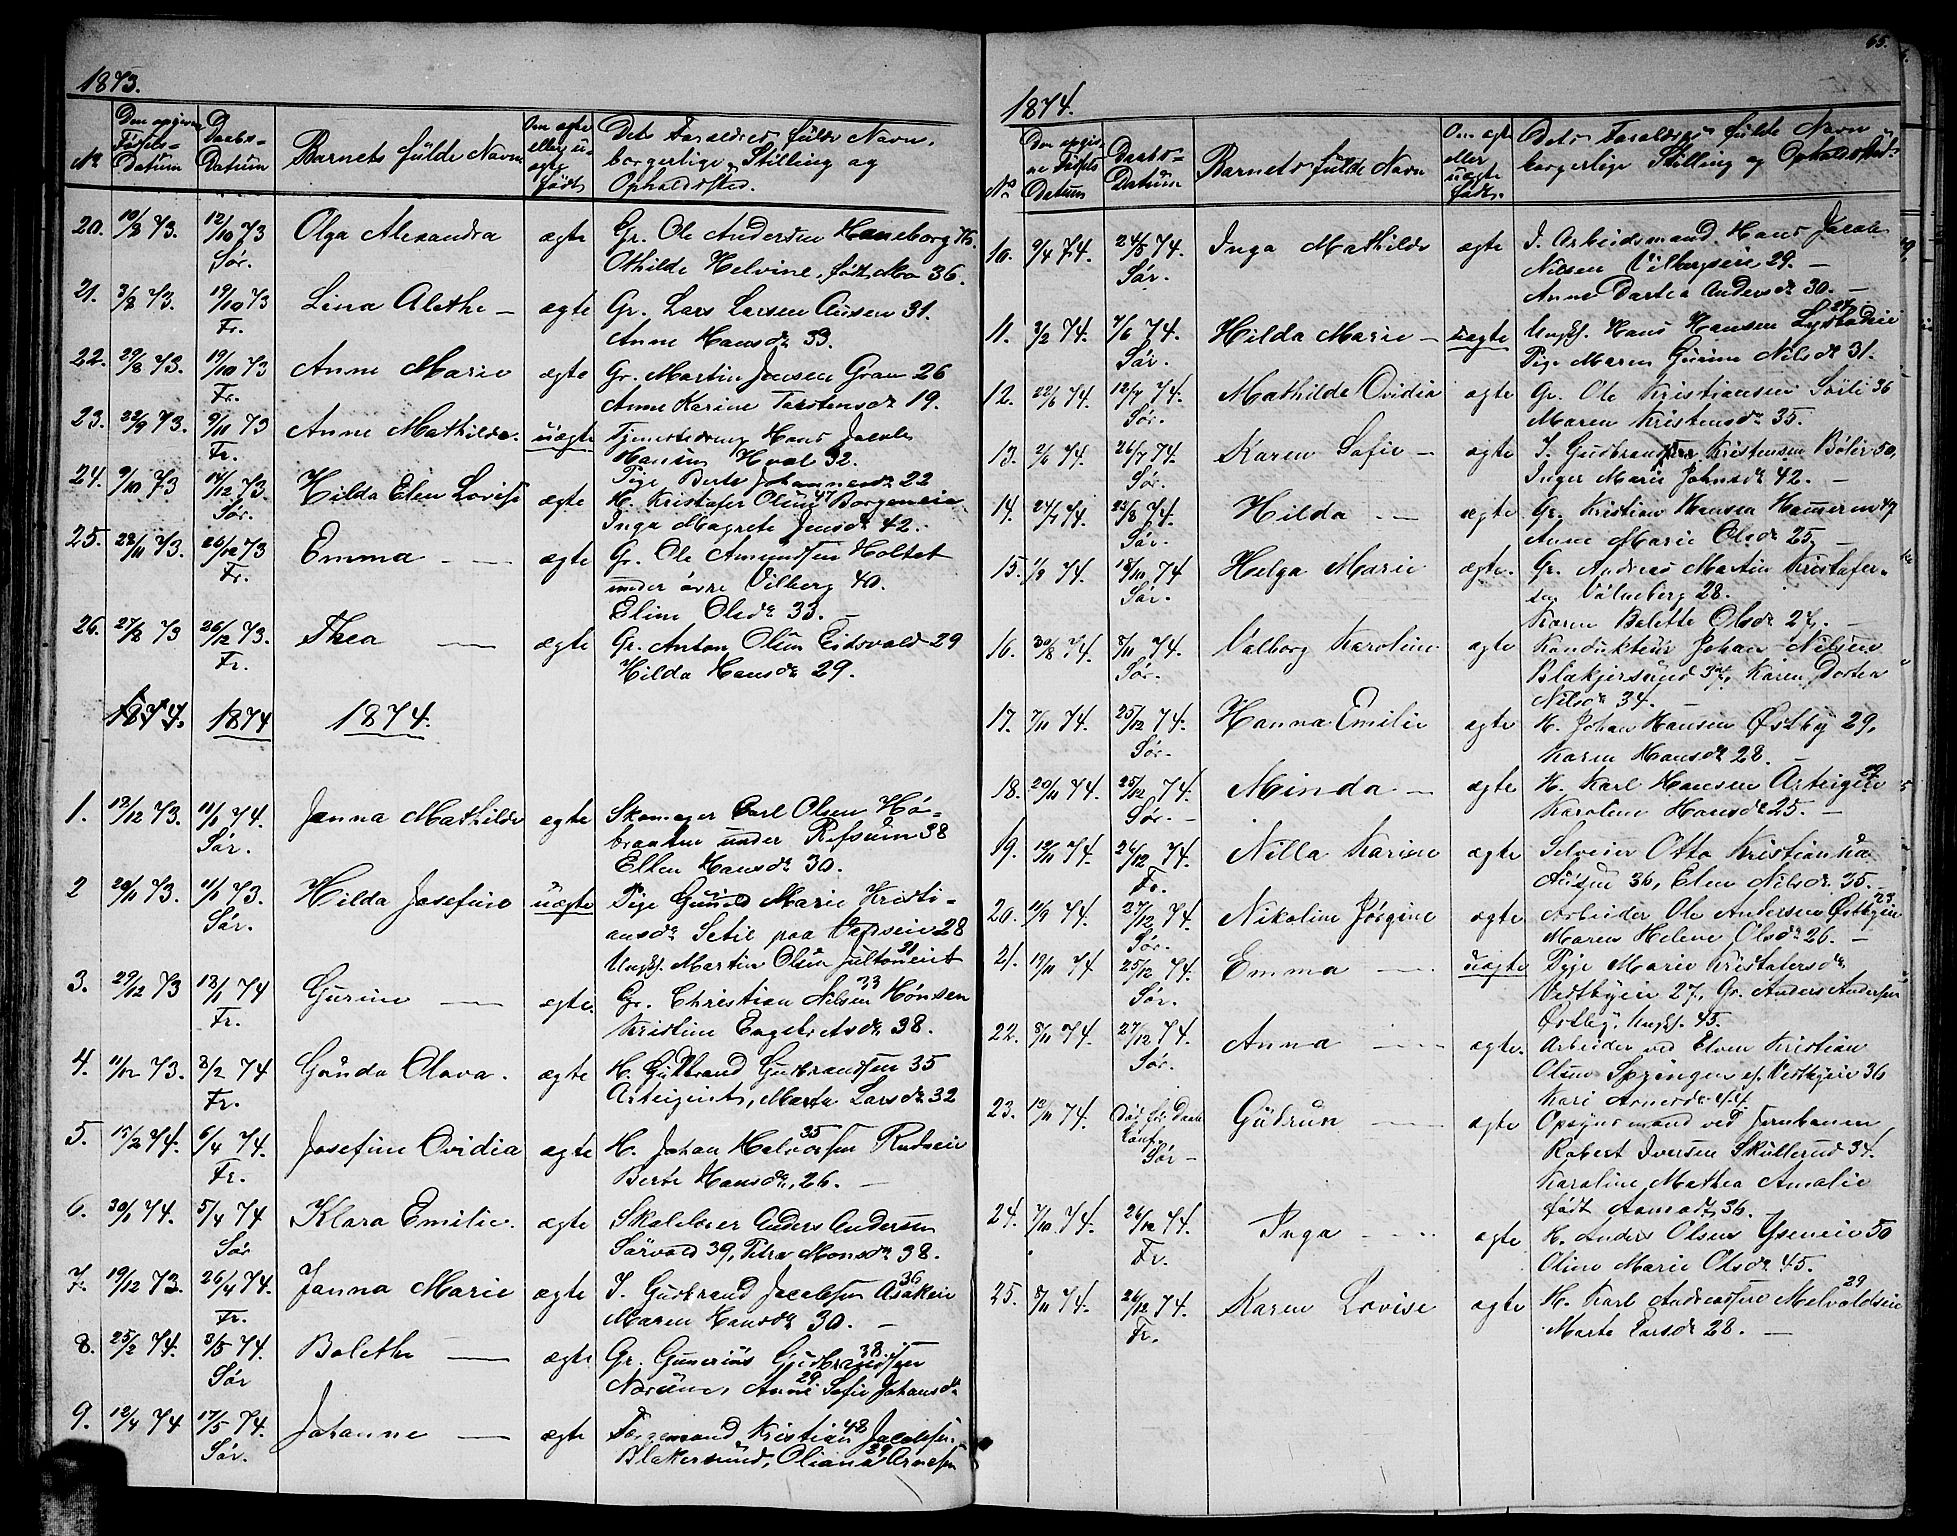 1873.
No
Den opgivne Fødsels-Datum
Daabs-Datum
Barnets fulde Navn
Om ægte eller uægte født
Det Forældres fulde Navn, borgerlige Stilling og Opholdssted.
20. 10/8 73. 12/10 73 Sør. Olga Alexandra ægte Gr. Ole Andersen Haneborg
Othilde Helvine, født Mo 36.
21. 3/8 73. 19/10 73 Fr. Lina Alethe — ægte Gr. Lars Larsen 31.
Anne Hansdr 33.
22. 29/8 73. 19/10 73 Fr. Anne Marie ægte Gr. Martin Jensen Grav 26
Anne Karine Torstensdr 19.
23. 22/9 73. 9/11 73 Fr. Anne Mathilde. uægte Tjenestedreng Hans Jacob
Hansen Hval 32.
Pige Berte Johannesdr 22
24. 9/10 73 14/12 73. Sør. Hilda Elen Lovise ægte H. Kristofer Olsen 47 Borgeneie
Inga Magrete Jensdr 42.
25. 28/11 73. 26/12 73 Fr. Emma — ægte Gr. Ole Amundsen Holtet
under övre Vilberg 40.
Eline Olsdr 33. —
26. 27/8 73 26/12 73. Fr. Thea — ægte Gr. Anton Olsen Eidsvold 29
Hilda Hansdr 29.
1874. 1874 1874.
1. 19/12 73. 11/1 74. Sør. Janna Mathilde ægte Skomager Carl Olsen Hö-
braaten under Refsum 38
Ellen Hansdr 30.
2 20/11 73. 11/1 73. Sør. Hilda Josefine uægte Pige Gunild Marie Kristi-
ansdr Setie paa 28
Ungkf. Martin Olsen 21
3. 29/12 73 18/1 74 Fr. Gurine — ægte. Gr. Christian Nilsen 33 Hönsen
Kristine Engebretsdr 38.
4. 11/12 73. 8/2 74 Fr. Gunda Olava. ægte H. Gulbrand Gudbrandsen 35
Arteigeie, Marte Larsdr 32
5. 15/2 74. 6/4 74. Fr. Josefine Ovidia ægte H. Johan Halvorsen 35 Rudseie
Berte Hansdr, 26. —
6. 30/1 74. 5/4 74 Sør Klara Emilie. ægte Skolelærer Anders Andersen
Sörvald 39, Petra Monsdr 38.
7. 19/12 73. 26/4 74. Fr. Janna Marie ægte I. Gudbrand Jacobsen Asakeie 36
Maren Hansdr 30. —
8. 25/2 74. 3/5 74. Sør Bolethe — ægte Gr. Gunerius Gudbrandsen 38.
Norum, Anne 29 Sofie Johansdr
9. 12/4 74 17/5 74. Sør. Johanne — ægte Færgemand Kristian 48 Jacobsen
Blakersund, Oliana 29 Arnesen
65.
1874.
No
Den opgivne Fødsels Datum
Daabs-Datum
Barnets fulde Navn
Om ægte eller uægte født.
Dets Forældres fulde Navn
borgerlige Stilling og Opholdssted
10. 9/4 74. 24/5 74. Sør. Inga Mathilde ægte I. Arbeidsmand Hans Jacob
Nilsen Vilbergseie 29. —
Anne Dartea Andersdr 30. —
11. 3/2 74. 7/6 74. Sør. Hilda Marie — uægte Ungkf. Hans Hansen
Pige Maren Gurine Nilsdr 31.
12. 22/6 74. 12/7 74. Sør. Mathilde Ovidia ægte Gr. Ole Kristiansen Sörli 36
Maren Kristensdr 35.
13. 2/6 74. 26/7 74. Sør. Karen Sofie — ægte I. Gudbrand Kristensen Böler 50,
Inger Marie Johnsdr 42. —
14. 24/7 74. 23/8 74. Sør. Hilda — ægte Gr. Kristian Hansen Hameren 47
Anne Marie Olsdr 25, —
15. 1/9 74. 18/10 74 Sør. Helga Marie ægte. Gr. Andreas Martin Kristofer-
sen Valneberg 28.
Karen Bolette Olsdr 27. —
16. 30/8 74. 8/11 74. Sør. Valborg Karoline ægte Kondukteur Johan Nilsen
Blakjersund 32, Karen Dortea
Nilsdr 34. —
17. 7/11 74. 25/12 74. Sør. Hanna Emilie ægte H. Johan Hansen Østby 29,
Karen Hansdr 28.
18. 20/11 74. 25/12 74. Sør. — Minda — ægte H. Karl Hansen Arteigeie
Karoline Hansdr 25. —
19. 12/11 74. 26/12 74. Fr. Nilla Karine ægte Selveier Otto Kristian
36, Elen Nilsdr 35.
20. 11/9 74. 27/12 74. Sør Nikoline Jörgine ægte Arbeider Ole Andersen Østbyeie 23.
Maren Helene Olsdr 26. —
21. 19/11 74 25/12 74. Sør Emma — uægte Pige Marie Kristofersdr
Vestbyeie 27, Gr. Anders Andersen
Østby, Ungkf. 45.
22. 8/11 74. 27/12 74. Sør. Anna — ægte. Arbeider ved Elven Kristian
Olsen Springen ef. Vestbyeie 36
Kari Arnesdr 44.
23. 13/11 74. Død før Daab Sør — Gudrun — ægte Opsynsmand ved Jernbanen
Robert Iversen Skullerud 34.
Karoline Mathea Amalie
født 36.
24. 7/10 74. 26/12 74. Fr. Inga — ægte H. Anders Olsen Yseneie 50
Oline Marie Olsdr 45.
25. 8/11 74. 26/12 74. Fr. Karen Lovise ægte H. Karl Andreassen Melvoldseie 29
Marte Larsdr 28. —